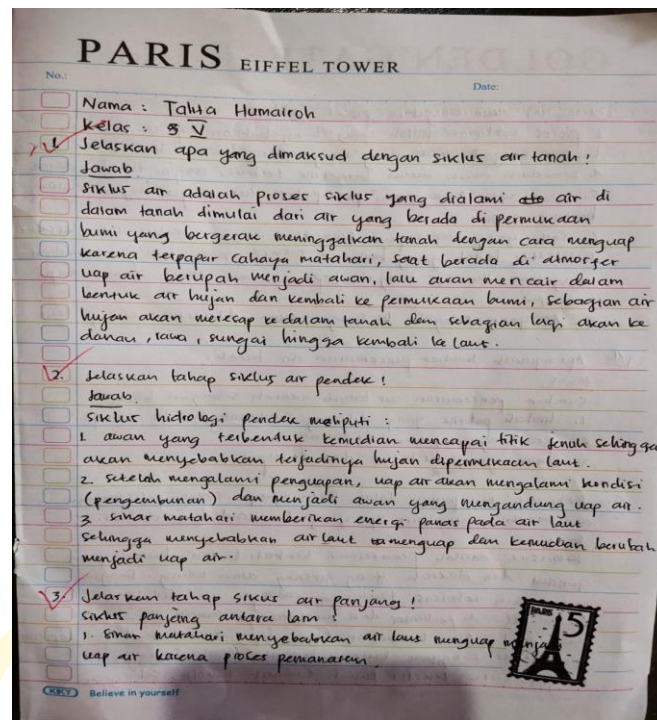 PARIS EIFFEL TOWER
No.:
Date:
Nama : Talita Humairoh
Kelas : 5 V
1. Jelaskan apa yang dimaksud dengan siklus air tanah !
Jawab
Siklus air adalah proses siklus yang dialami ato air di
dalam tanah dimulai dari air yang berada di permukaan
bumi yang bergerak meninggalkan tanah dengan cara menguap
karena terpapar cahaya matahari, saat berada di atmosfer
uap air berupah menjadi awan, lalu awan mencair dalam
bentuk air hujan dan kembali ke permukaan bumi, sebagian air
hujan akan meresap ke dalam tanah dan sebagian lagi akan ke
danau, rawa, sungai hingga kembali ke laut.
2. Jelaskan tahap siklus air pendek !
Jawab
Siklus hidrologi pendek meliputi :
1 awan yang terbentuk kemudian mencapai titik jenuh sehingga
akan menyebabkan terjadinya hujan dipermukaan laut.
2. setelah mengalami penguapan, uap air akan mengalami kondisi
(pengembunan) dan menjadi awan yang mengandung uap air.
3 sinar matahari memberikan energi panas pada air laut
sehingga menyebabkan air laut menguap dan kemudian berubah
menjadi uap air.
3. Jelaskan tahap sikus air panjang !
Siklus panjang antara lain :
1. Sinar matahari menyebabkan air laut menguap menjadi
uap air karena proses pemanasan.
PARIS 5
KKY Believe in yourself